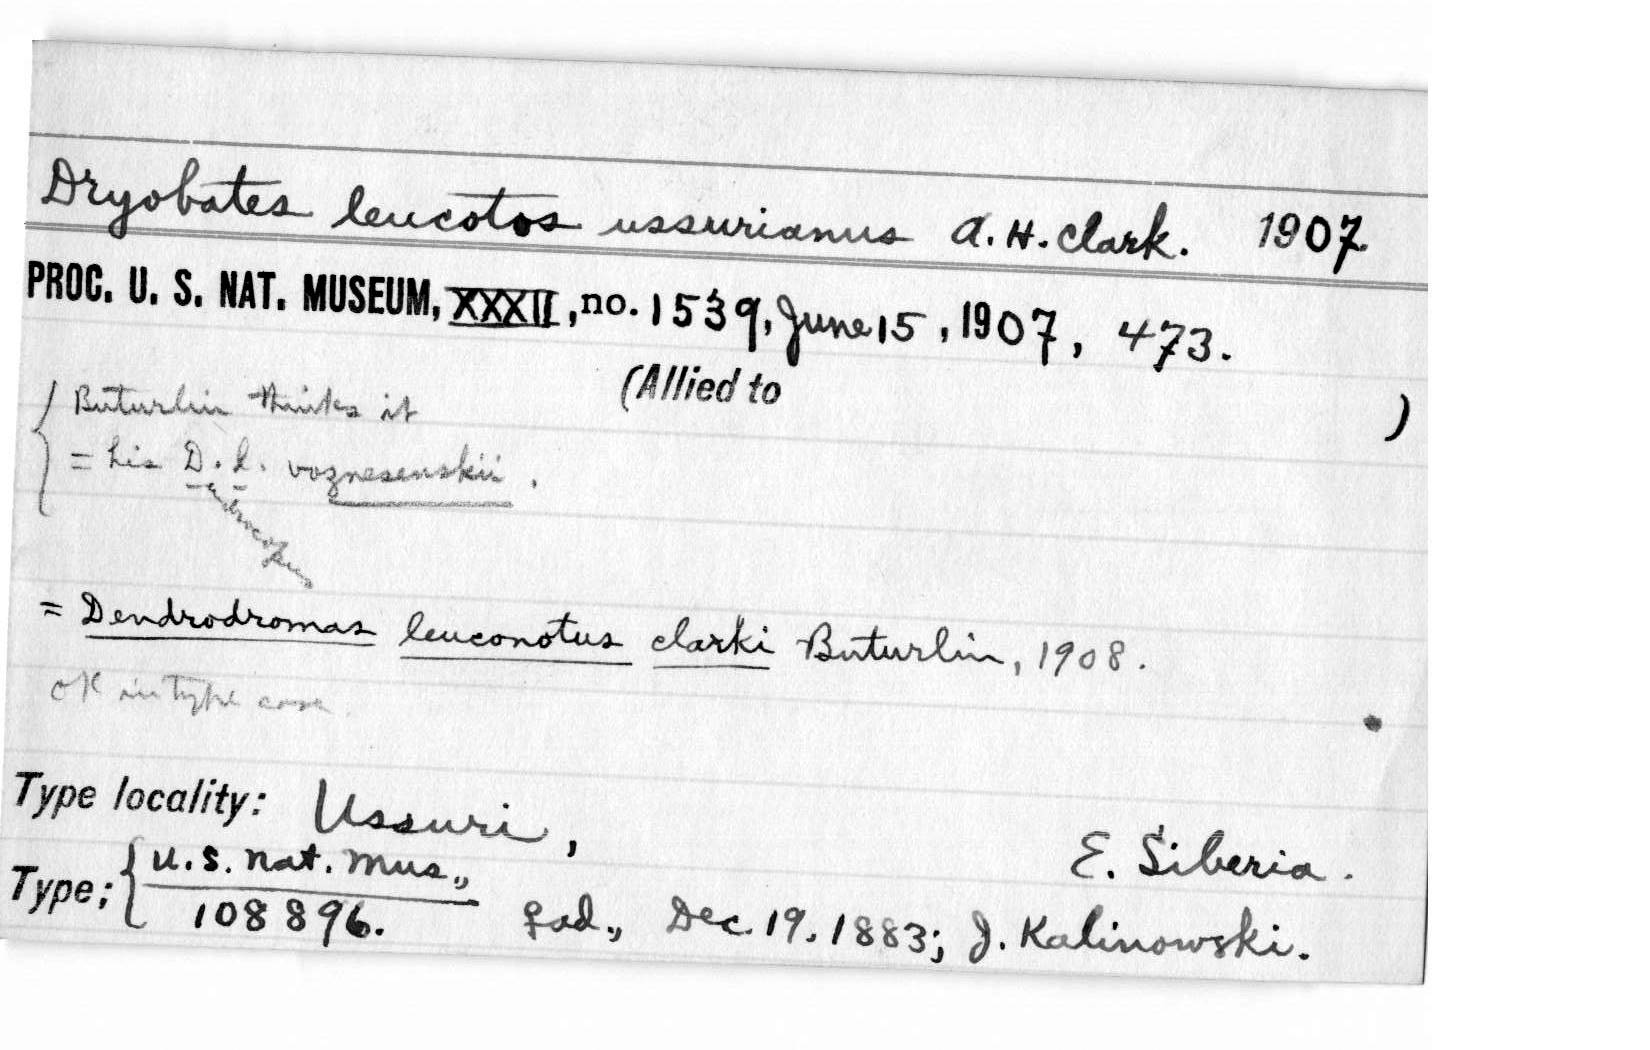 Dryobates leucotos ussurianus A. H. Clark. 1907.
PROC. U. S. NAT. MUSEUM, XXXII, no. 1539, June 15, 1907, 473.
(Allied to )
{ Buturlin thinks it
= his D. l. voznesenskii.
= Dendrodromas leuconotus clarki Buturlin, 1908.
OK in type case.
Type locality: Ussuri, E. Siberia.
Type: { U. S. Nat. Mus., 108896. ♀ ad., Dec. 19, 1883; J. Kalinowski.